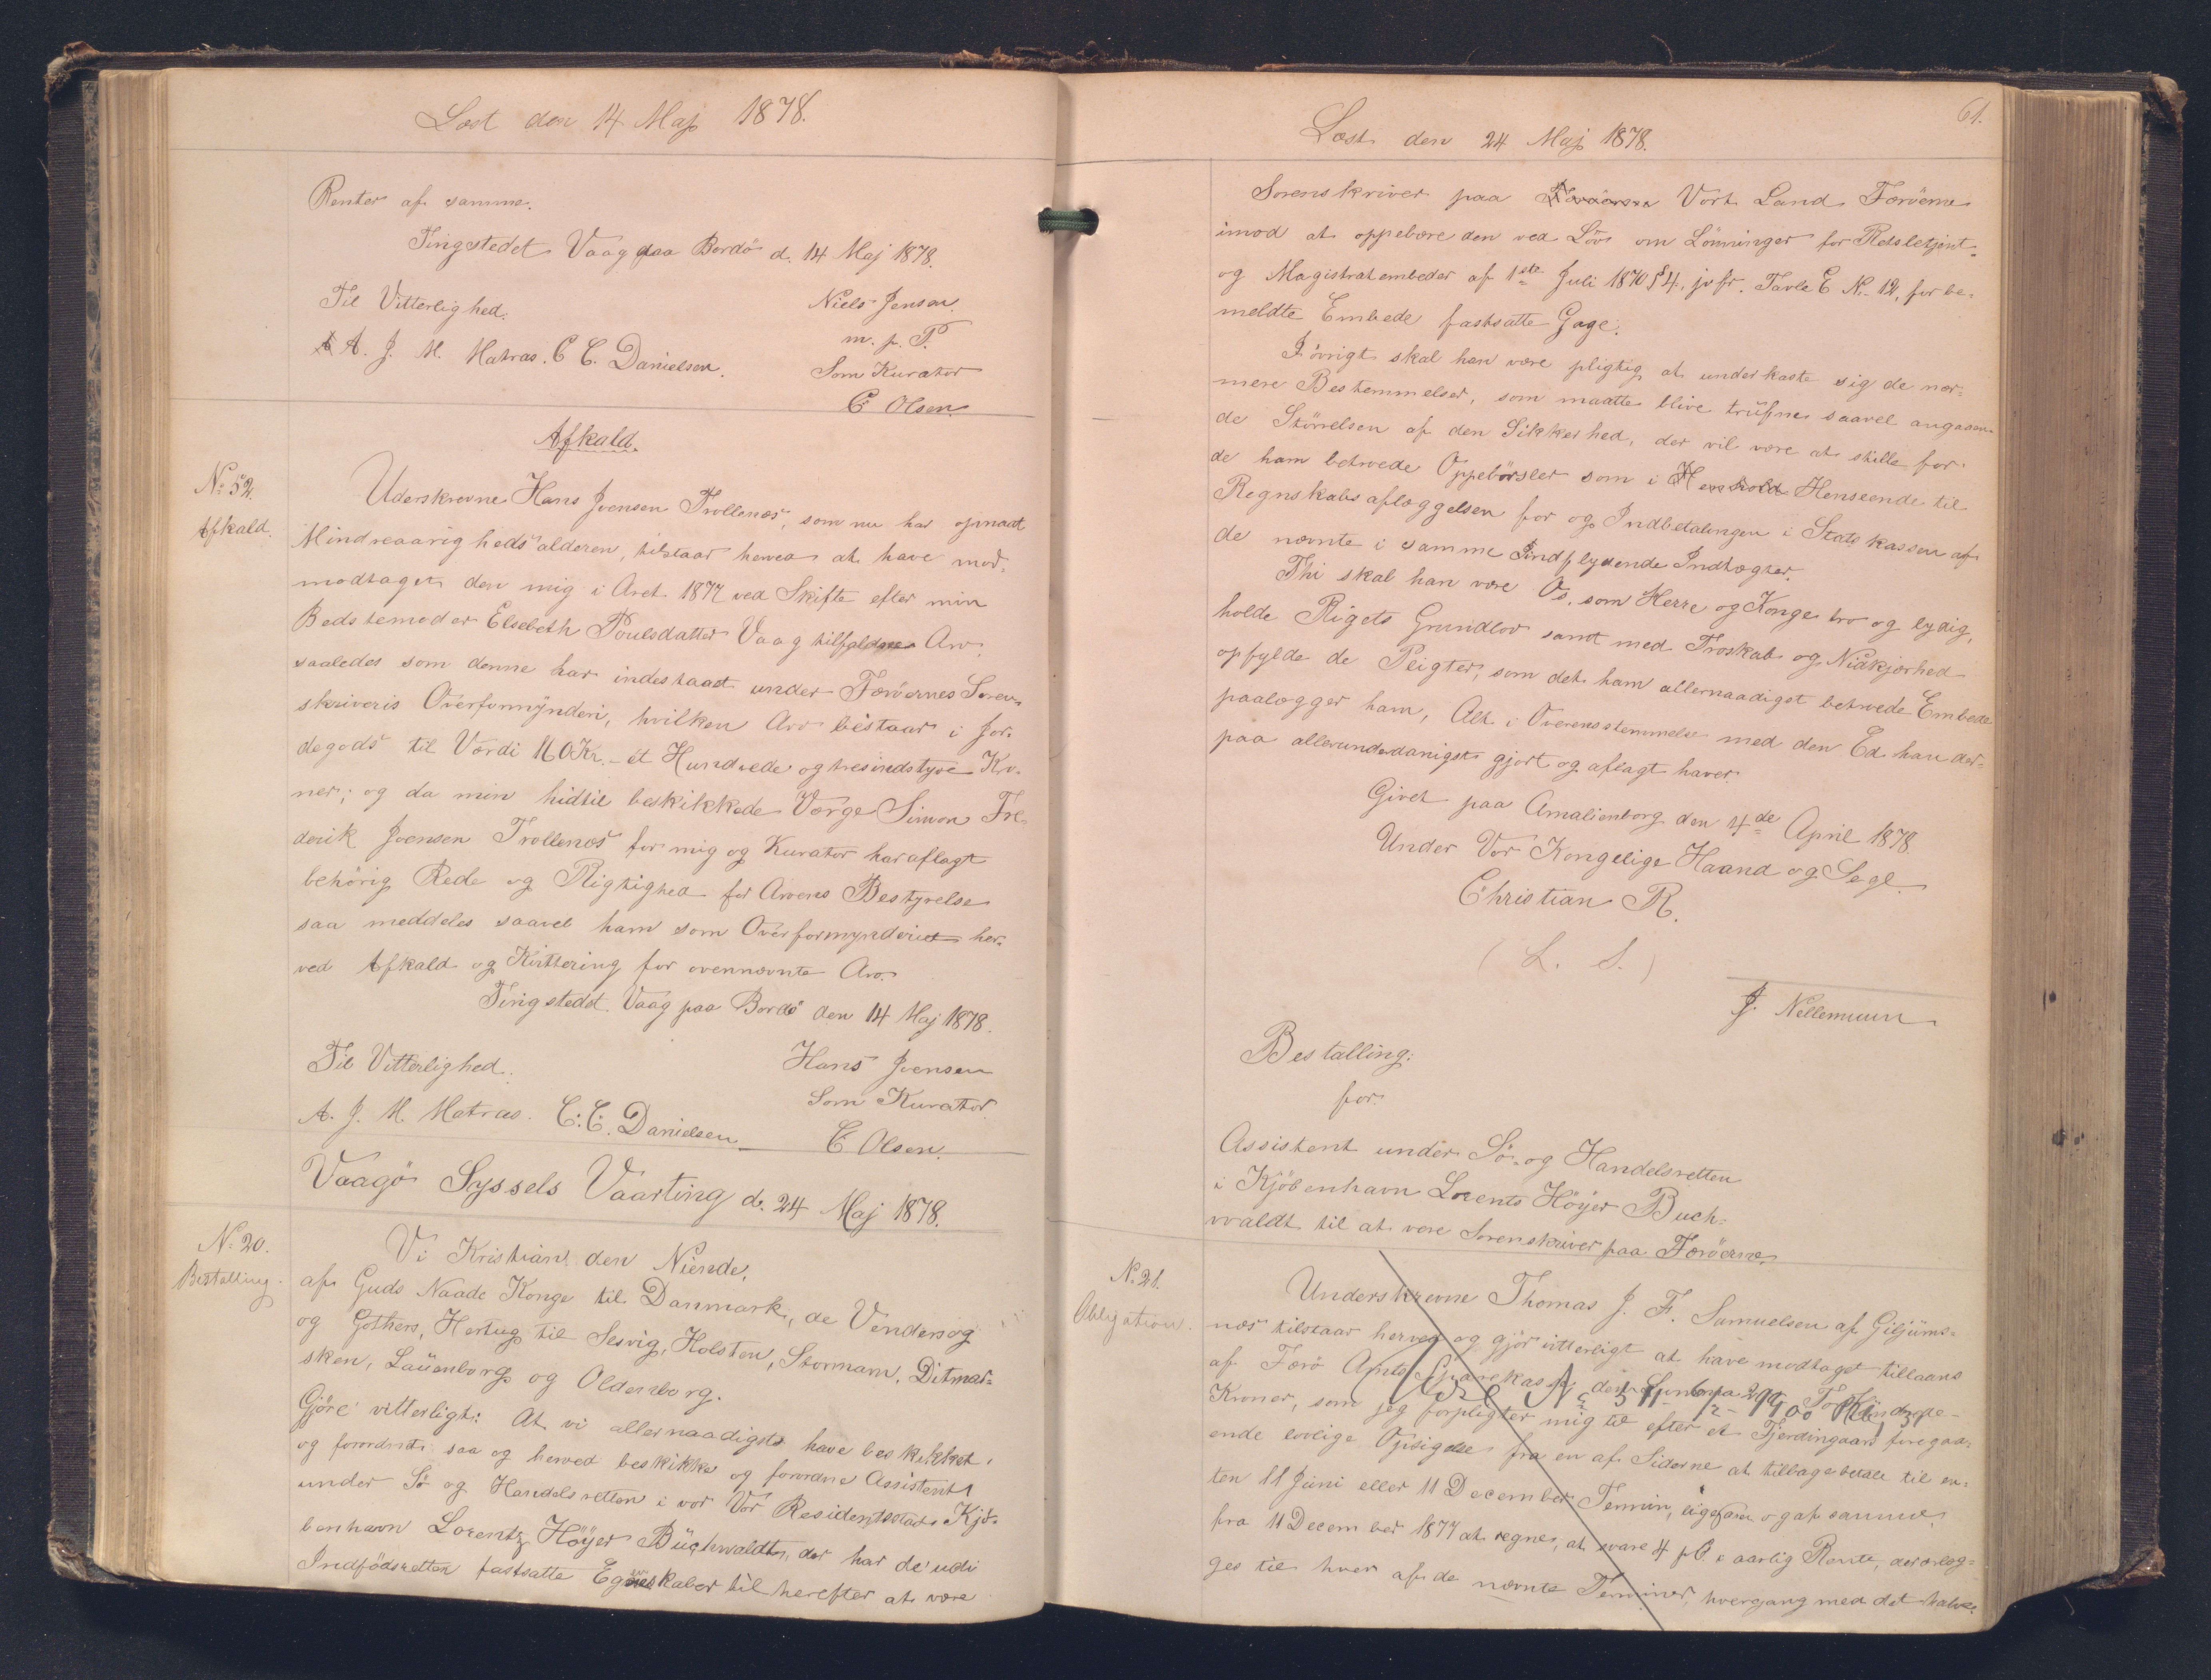 Læst den 14 Maj 1878.
Renter af samme.
Tingstedet Vaag paa Bordö d. 14 Maj 1878.
Til Vitterlighed.
A. J. M. Matras. C C. Danielsen.
Niels Jensen.
m. p. P.
Som Kurator
C Olsen.
Afkald.
No 52.
Afkald.
Uderskrevne Hans Joensen Trollenæs, som nu har opnaaet
Mindreaarighedsalderen, tilstaar herved at have mod-
modtaget den mig i Aret 1877 ved Skifte efter min
Bedstemoder Elsebeth Poulsdatter Vaag tilfaldne Arv
saaledes som denne har indestaaet under Færöernes Soren-
skriveris Overformynderi, hvilken Arv bestaar i Jor-
degods til Værdi 160 Kr. - ét Hundrede og tresindstyve Kro-
ner; og da min hidtil beskikkede Værge Simon Fre-
derik Joensen Trollenæs for mig og Kurator har aflagt
behörig Rede og Rigtighed for Arvens Bestyrelse
saa meddeles saavel ham som Overformynderiet her-
ved Afkald og Kvittering for ovennævnte Arv.
Tingstedet Vaag paa Bordö den 14 Maj 1878.
Til Vitterlighed.
A. J. M. Matras. C. C. Danielsen
Hans Joensen
Som Kurator
C Olsen.
Vaagö Syssels Vaarting d. 24 Maj 1878.
No 20.
Bestalling.
Vi Kristian den Niende,
af Guds Naade Konge til Danmark, de Venders og
og Gothers, Hertug til Slesvig, Holsten, Stormarn, Ditmar-
sken, Lauenborg og Oldenborg.
Gjöre vitterligt: At vi allernaadigst have beskikket
og forordnet saa og herved beskikke og forordne Assistent
under Sö og Handelsretten i vor Vor Residentsstad Kjö-
benhavn Lorentz Höyer Buchwaldt, der har de udi
Indfödsretten fastsatte Egenskaber til herefter at være
61.
Læst den 24 Maj 1878.
Sorenskriver paa Vort Land Færöerne
imod at oppebære den ved Lov om Lönninger for Retsbetjent-
og Magistratembeder af 1ste Juli 1870 § 4, jvfr. Tavle E No 12, for be-
meldte Embede fastsatte Gage.
I övrigt skal han være pligtig at underkaste sig de nær-
mere Bestemmelser, som maatte blive trufne saavel angaaen-
de Störrelsen af den Sikkerhed, der vil være at stille for
de ham betroede Oppebörsler som i Henseende til
Regnskabsaflæggelsen for og Indbetalingen i Statskassen af
de nævnte i samme Indflydende Indtægter.
Thi skal han være Os, som Herre og Konge tro og lydig,
holde Rigets Grundlov samt med Troskab og Nidkjærhed
opfylde de Pligter, som det ham allernaadigst betroede Embede
paalægger ham, Alt i Overensstemmelse med den Ed han der-
paa allerunderdanigst gjort og aflagt haver.
Givet paa Amalienborg den 4de April 1878.
Under Vor Kongelige Haand og Segl.
Christian R.
(L. S.)
J. Nellemann
Bestalling
for
Assistent under Sö- og Handelsretten
i Kjöbenhavn Lorents Höyer Buch-
waldt til at være Sorenskriver paa Færöerne
No 21.
Obligation.
Underskrevne Thomas J. F. Samuelsen af Giljums-
næs tilstaar herved og gjör vitterligt at have modtaget tillaans
af Færö Amts Sparekasse den Summa 200 To Hundrede
Kroner, som jeg forpligter mig til efter et Fjerdingaars foregaa-
ende lovlige Opsigelse fra en af Siderne at tilbagebetale til en-
ten 11 Juni eller 11 December Termin, og af samme
fra 11 December 1877 at regne, at svare 4 pC. i aarlig Rente, der erlæg-
ges til hver af de nævnte Terminer, hvergang med det halve.